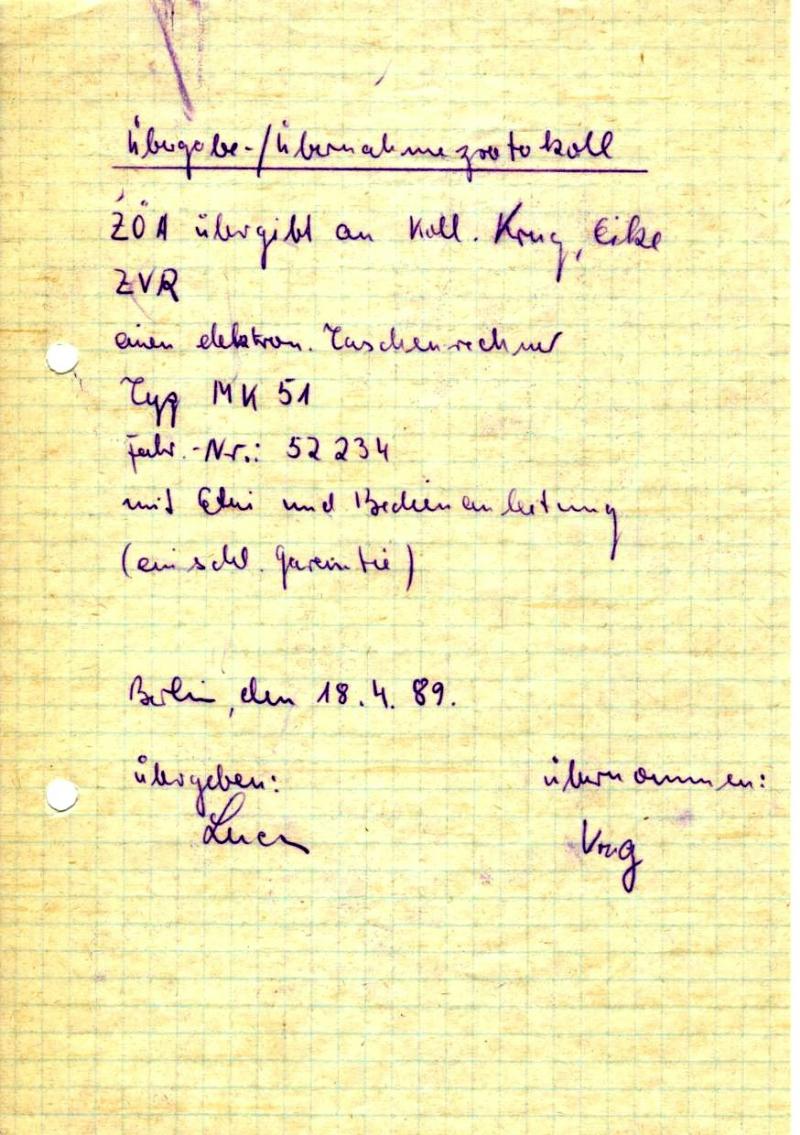 Übergabe-/Übernahmeprotokoll
ZÖA übergibt an Koll. Krug, Eike
ZVR
einen elektron. Taschenrechner
Typ MK 51
Fabr.-Nr.: 52 234
mit Etui und Bedienanleitung
(einschl. Garantie)
Berlin, den 18.4.89.
übergeben: übernommen:
Krug